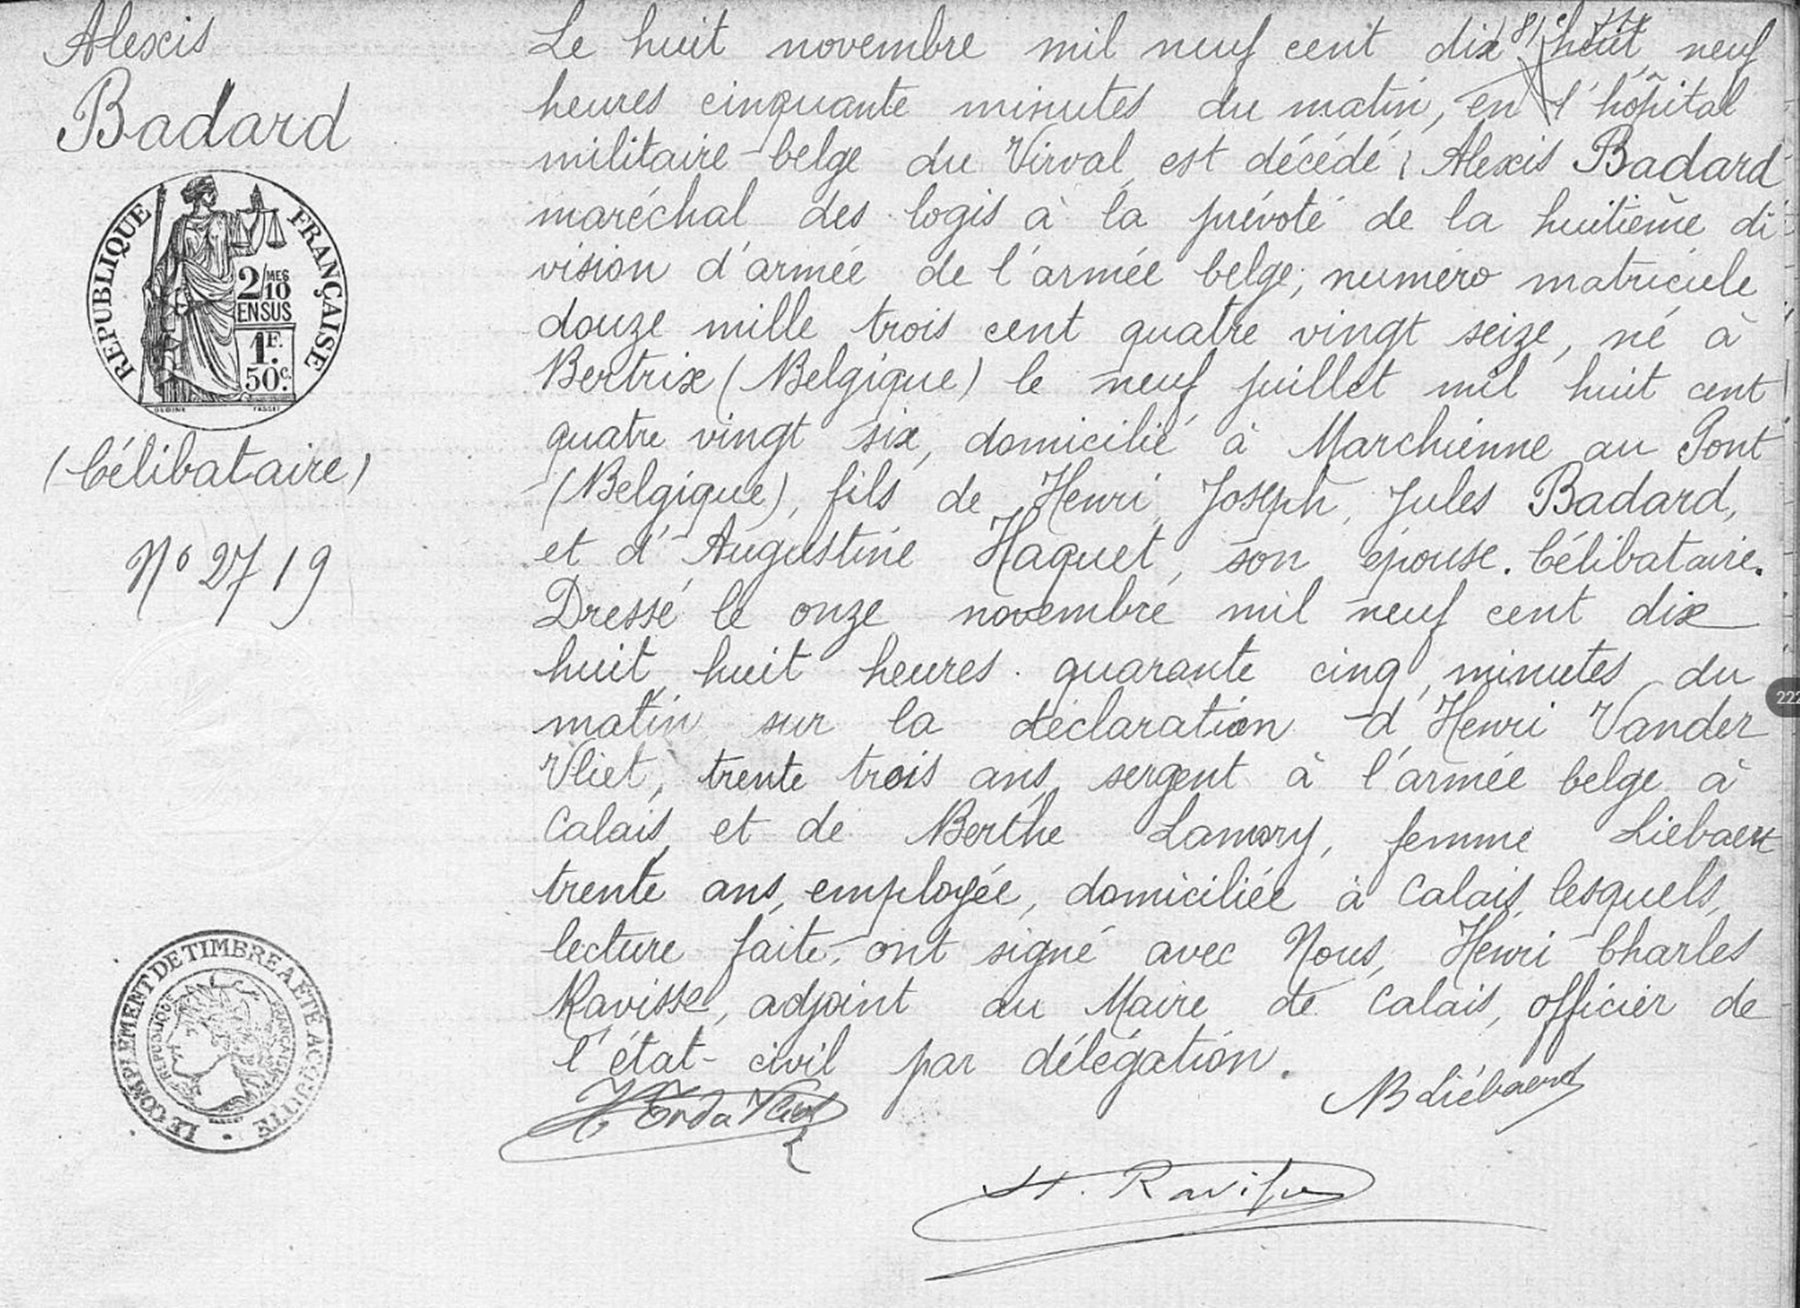 Alexis
Badard
RÉPUBLIQUE FRANÇAISE
2/10 MES
EN SUS
1F.
50c.
(Célibataire)
No 2719
LE COMPLÉMENT DE TIMBRE A ÉTÉ ACQUITTÉ
RÉPUBLIQUE FRANÇAISE
Le huit novembre mil neuf cent dix huit, neuf
heures cinquante minutes du matin, en l'hôpital
militaire belge du Virval, est décédé, Alexis Badard
maréchal des logis à la prévoté de la huitième di
vision d'armée de l'armée belge, numéro matricule
douze mille trois cent quatre vingt seize, né à
Bertrix (Belgique) le neuf juillet mil huit cent
quatre vingt six, domicilié à Marchienne au Pont
(Belgique), fils de Henri, Joseph, Jules Badard,
et d'Augustine Haquet, son épouse. Célibataire.
Dressé le onze novembre mil neuf cent dix
huit huit heures quarante cinq minutes du
matin sur la déclaration d'Henri Vander
Vliet, trente trois ans, sergent à l'armée belge à
Calais, et de Berthe Lamory, femme Liebaert
trente ans, employée, domiciliée à Calais, lesquels,
lecture faite, ont signé avec Nous, Henri Charles
Ravisse, adjoint au Maire de Calais, officier de
l'état-civil par délégation.
B Liébaert
H. Ravisse
222